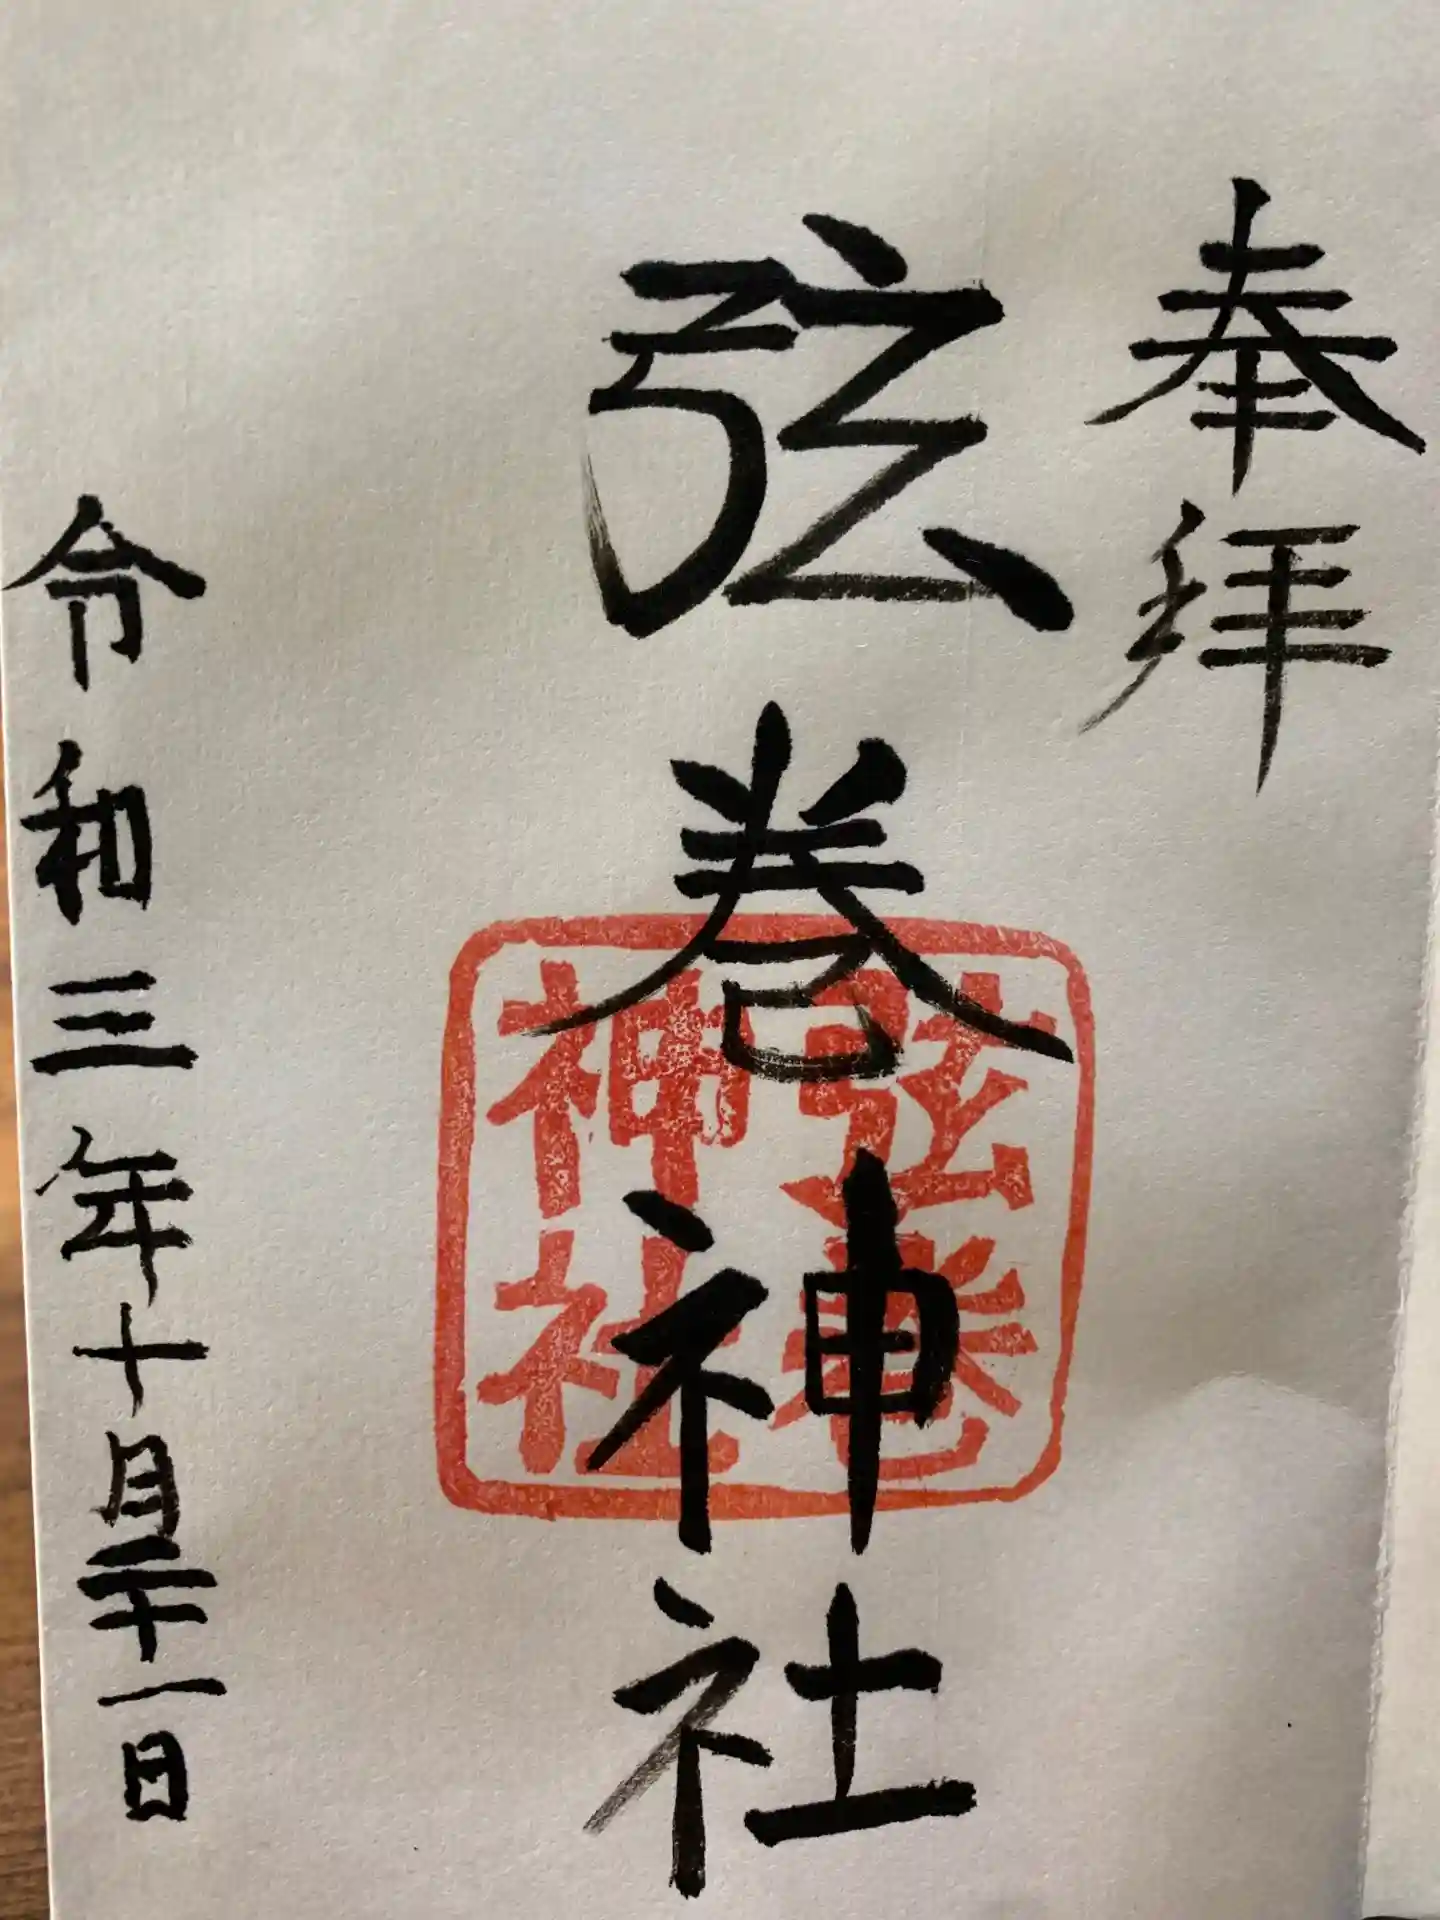 奉拝
弦巻神社
弦巻
神社
令和三年十月三十一日